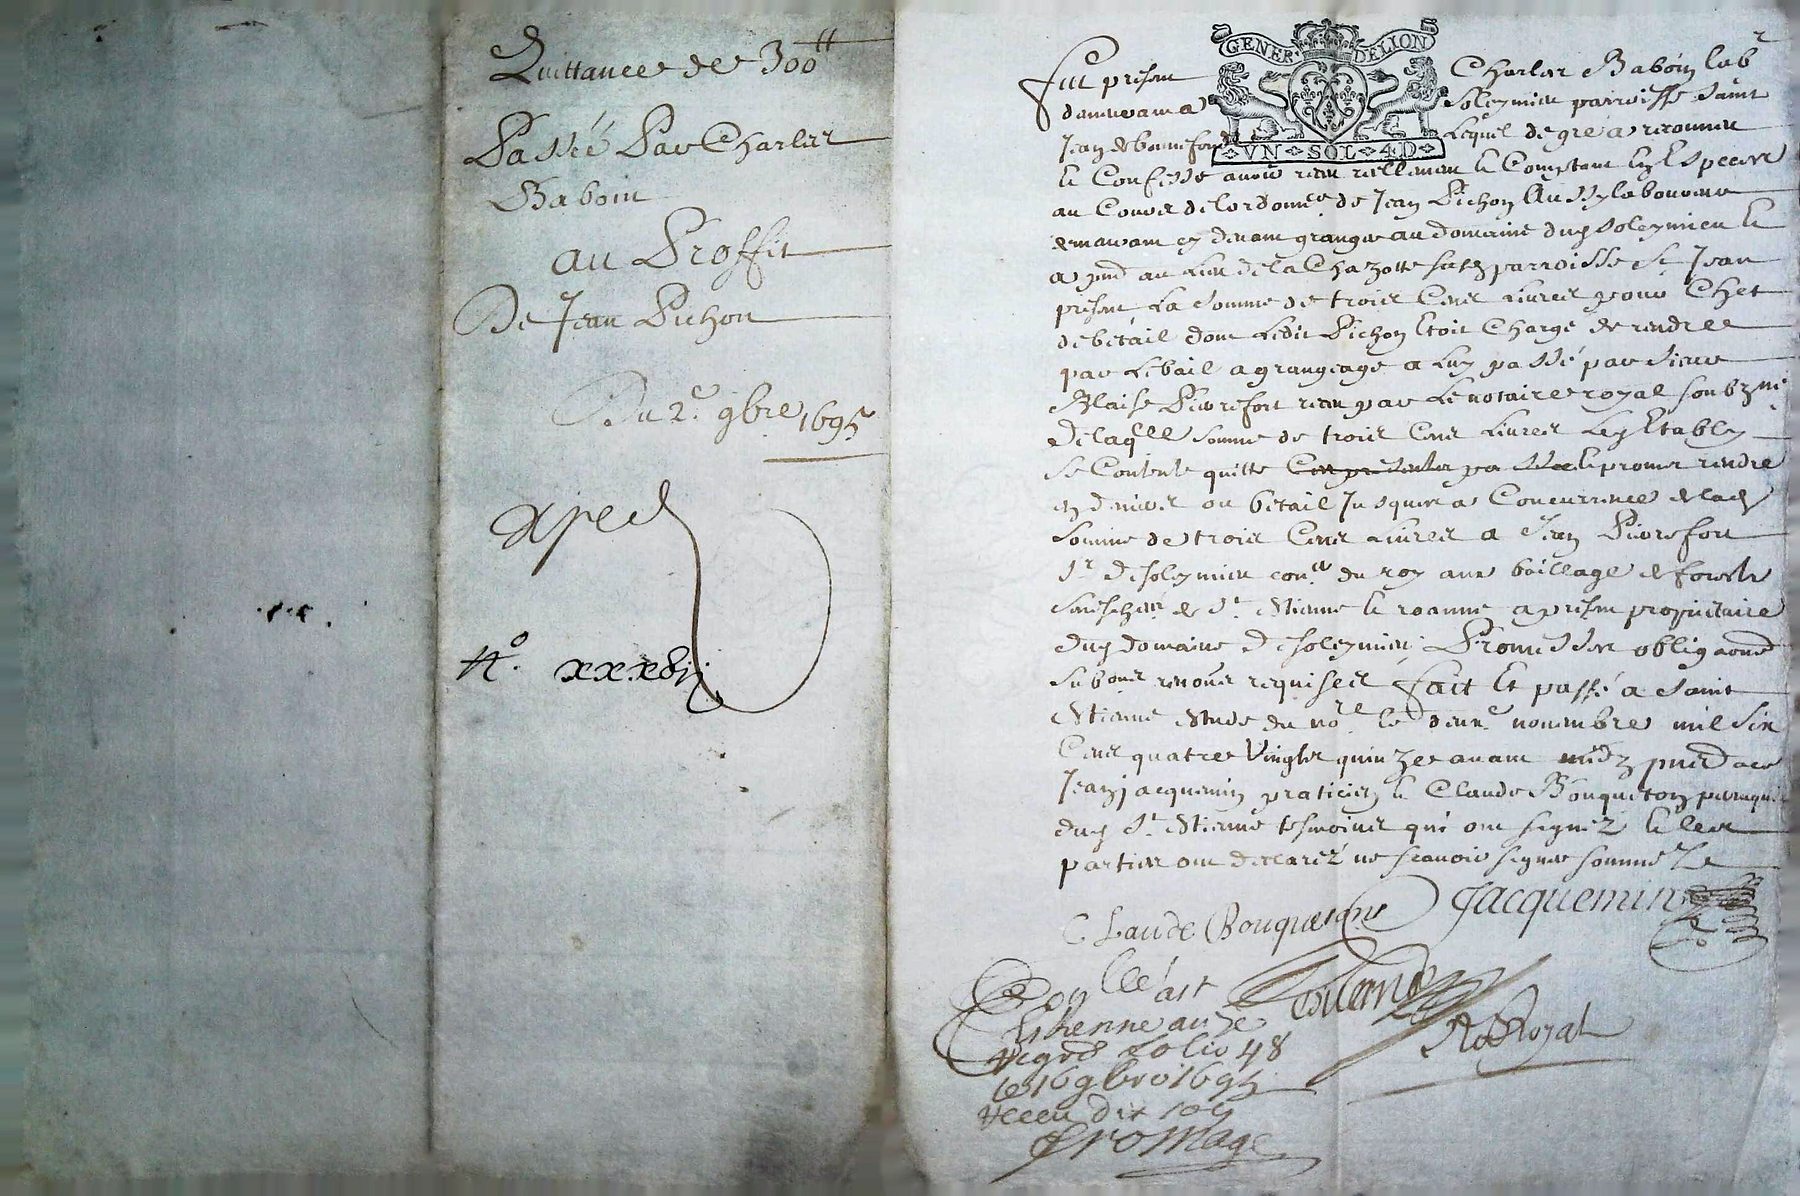 Quittance de 300 ₶
Passée Par Charles
Baboin
au Proffit
De Jean Pichon
Du 2e 9bre 1695
exped
N°. xxxxbij
GENER DELION
VN SOL 4D
Fut present Charles Baboin labr
demeurant a Soleymieu parroisse Saint
Jean de bonnefond Lequel de gré a reconneu
et Confesse avoir receu reellement et Comptant En Especes
au Cours de lordonnce de Jean Pichon Aussy laboureur
demeurant cy devant granger au domaine dud Soleymieu et
a pnt au Lieu de la Chazotte susd parroisse St Jean
present La Somme de trois Cens Livres pour Chet
de bétail dont Ledit Pichon Etoit Chargé de rendre
par Le bail a grangeage a Luy passé par Sieur
Blaise Pierrefort receu par Le notaire royal soubzne
De laqlle Somme de trois Cens Livres Led Estably
Se Contente quitte et promet rendre
en deniers ou bétail Jusques a Concurrence de lad
Somme de trois Cens Livres a Jean Pierrefort
Sr de Soleymieu conr du roy aux baillage de forests
Senéchee de St Etienne et roanne a present proprietaire
dud domaine de Soleymieu Promesses obligaons
Submons renons requises fait Et passé a Saint
Etienne Etude du nore le deuxe novembre mil Six
Cens quatre Vingts quinze avant midy pns
Jean jacquemin praticien et Claude Bouqueton
dud St Etienne tesmoins qui ont signez et les
parties ont declaréz ne scavoir signer sommé Ze
Claude Bouqueton Jacquemin
Conllé a St
Estienne au 2e
Regre folio 48
le 16 9bre 1695
Receu dix sols
Fromage
No Royal